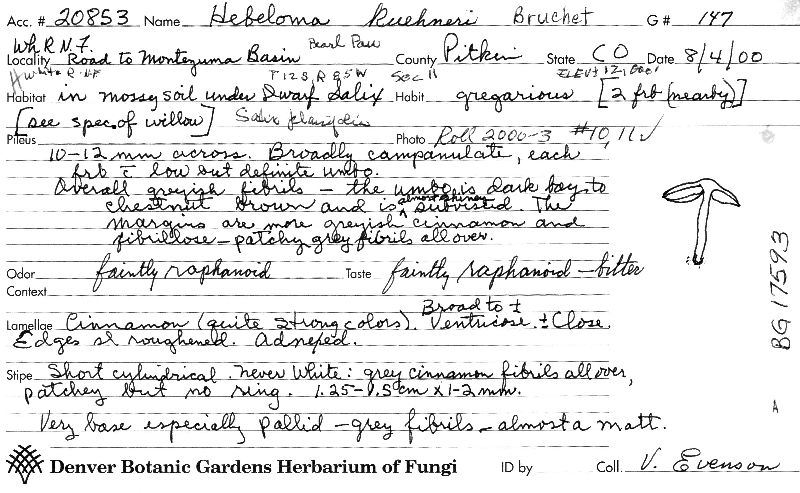 Acc. # 20853 Name Hebeloma Kuehneri Bruchet G# 147
Wh R N.F. Pearl Pass
Locality Road to Montezuma Basin County Pitkin State CO Date 8/4/00
White R. NF T12S, R85W Sec 11 ELEV 12,000'
Habitat in mossy soil under Dwarf Salix Habit gregarious [2 frb (nearby)]
[see spec. of willow] Salix planifolia
Pileus Photo Roll 2000-3 #10, 11 ✓
10-12 mm across. Broadly campanulate, each
frb c̄ low but definite umbo.
Overall greyish fibrils – the umbo is dark bay to
chestnut brown and is almost shiney subviscid. The
margins are more greyish cinnamon and
fibrillose – patchy grey fibrils all over.
Odor faintly raphanoid Taste faintly raphanoid – bitter
Context
Lamellae Cinnamon (quite strong colors). Broad to ± Ventricose. ± Close.
Edges sl roughened. Adnexed.
Stipe Short cylindrical. Never White: grey cinnamon fibrils all over,
patchey but no ring. 1.25-1.5 cm x 1-2 mm.
Very base especially pallid – grey fibrils – almost a matt.
Denver Botanic Gardens Herbarium of Fungi ID by Coll. V. Evenson
BG 17593
A